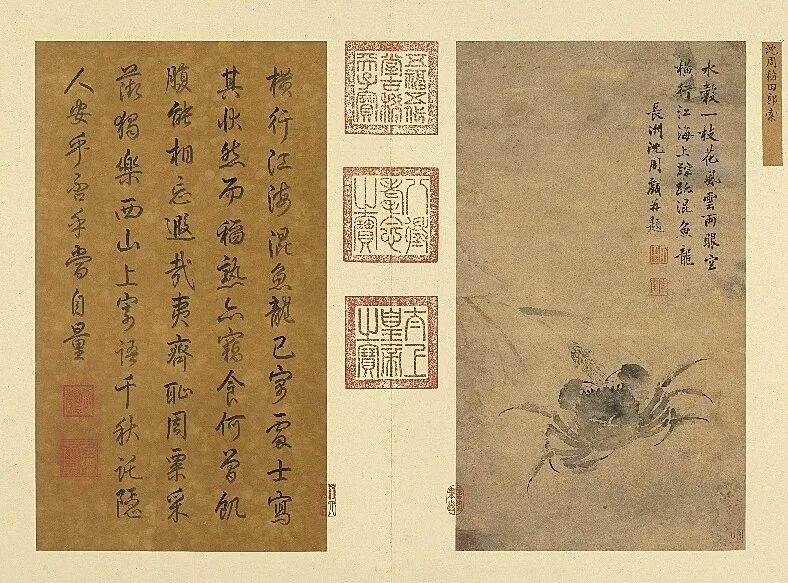 沈周稻田郭索
水穀一枝花風雲兩眼空
橫行江海上蹤跡混魚龍
長洲沈周戲并題
五福五代
堂古稀
天子寶
八徵
耄念
之寶
太上
皇帝
之寶
橫行江海混魚龍已寄處士寫
其狀然而稻熟亦竊食何曾飢
腹能相忘遐哉夷齊恥周粟采
薇獨樂西山上寄語千秋託隱
人安乎否乎當自量